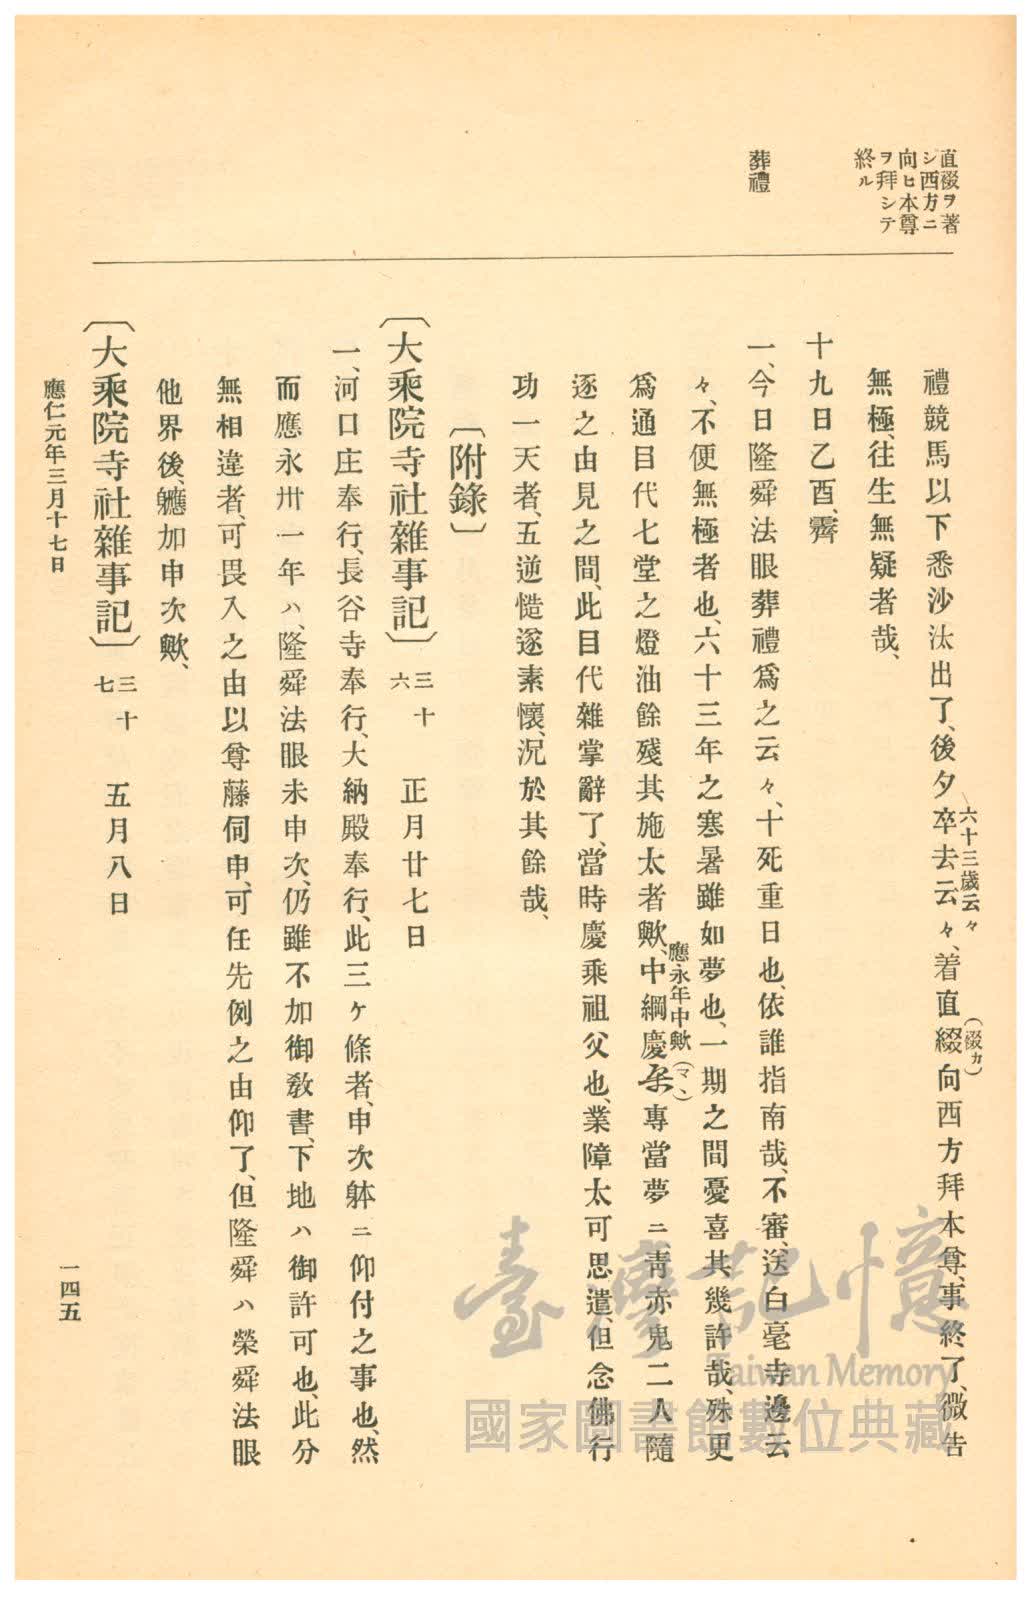 直裰ヲ著
シ西方ニ
向ヒ本尊
ヲ拜シテ
終ル
葬禮
禮競馬以下悉沙汰出了、後夕卒去云々、着直綴向西方拜本尊、事終了、微告
六十三歲云々
(裰カ)
無極、往生無疑者哉、
十九日乙酉、霽
一、今日隆舜法眼葬禮爲之云々、十死重日也、依誰指南哉、不審、送白毫寺邊云
々、不便無極者也、六十三年之寒暑雖如夢也、一期之間憂喜其幾許哉、殊更
應永年中歟
(マヽ)
爲通目代七堂之燈油餘殘其施太者歟、中綱慶𠮷專當夢ニ靑赤鬼二人隨
逐之由見之間、此目代雜掌辭了、當時慶乘祖父也、業障太可思遣、但念佛行
功一天者、五逆愷遂素懷、況於其餘哉、
〔附錄〕
〔大乘院寺社雜事記〕三十六 正月廿七日
一、河口庄奉行、長谷寺奉行、大納殿奉行、此三ケ條者、申次躰ニ仰付之事也、然
而應永卅一年ハ、隆舜法眼未申次、仍雖不加御敎書、下地ハ御許可也、此分
無相違者、可畏入之由以尊藤伺申、可任先例之由仰了、但隆舜ハ榮舜法眼
他界後、軈加申次歟、
〔大乘院寺社雜事記〕三十七 五月八日
應仁元年三月十七日
一四五
臺灣記憶
Taiwan Memory
國家圖書館數位典藏